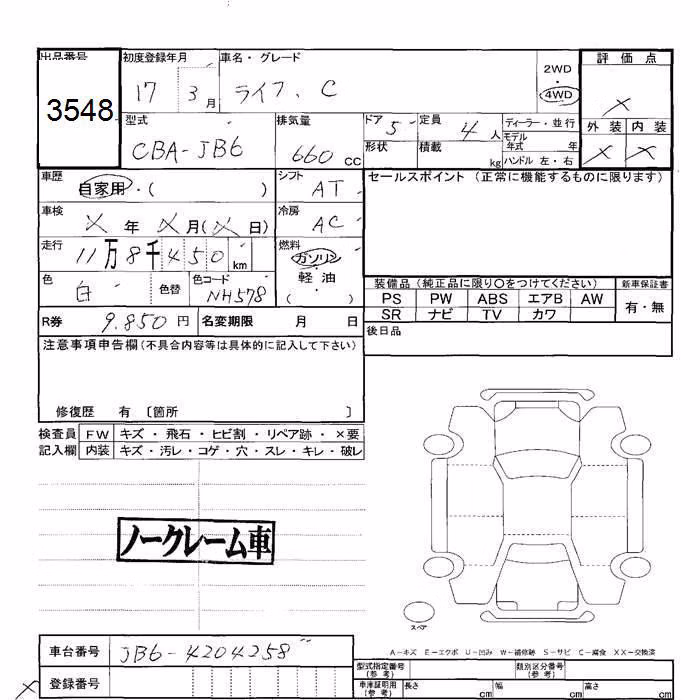 出品番号 初度登録年月 車名・グレード 評価点
3548 17 3月 ライフ、C 2WD
4WD ×
外装 内装
× ×
型式 排気量 ドア 5 定員 4人 ディーラー・並行
CBA-JB6 660cc 形状 積載 kg モデル年式 年
ハンドル 左・右
車歴 シフト セールスポイント (正常に機能するものに限ります)
自家用・( ) AT
車検 冷房
×年 ×月(×日) AC
走行 燃料
11万8千450km ガソリン・軽油・( )
色 白 色替 色コード NH578
装備品 (純正品に限り○をつけてください) 新車保証書
PS PW ABS エアB AW 有・無
SR ナビ TV カワ
R券 9.850円 名変期限 月 日
後日品
注意事項申告欄 (不具合内容等は具体的に記入して下さい)
修復歴 有 〔箇所 〕
検査員 FW キズ・飛石・ヒビ割・リペア跡・×要
記入欄 内装 キズ・汚レ・コゲ・穴・スレ・キレ・破レ
ノークレーム車
スペア
A-キズ E-エクボ U-凹み W-補修跡 S-サビ C-腐食 XX-交換済
車台番号 JB6-4204258
登録番号
型式指定番号 (参考) 類別区分番号 (参考)
車庫証明用 (参考) 長さ cm 幅 cm 高さ cm
×